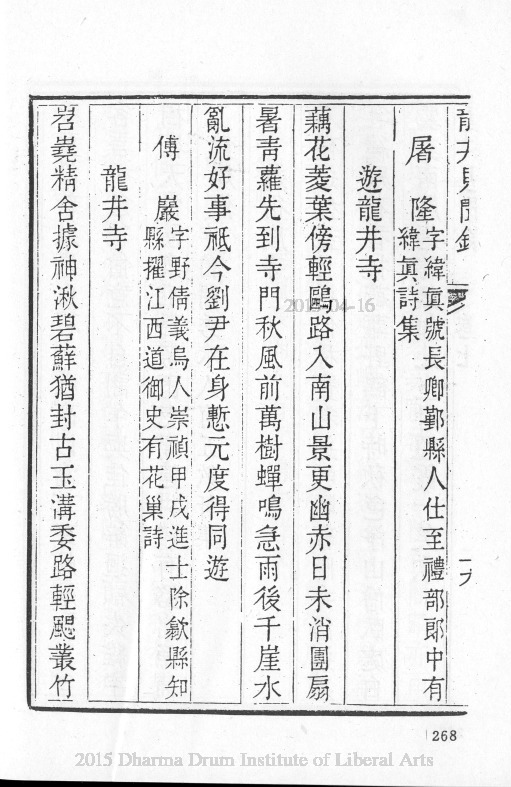 龍井見聞錄
一六
屠隆字緯真號長卿鄞縣人仕至禮部郎中有
緯真詩集
遊龍井寺
藕花菱葉傍輕鷗路入南山景更幽赤日未消團扇
暑青蘿先到寺門秋風前萬樹蟬鳴急雨後千崖水
亂流好事祗今劉尹在身慙元度得同遊
傅巖字野倩義烏人崇禎甲戌進士除歙縣知
縣擢江西道御史有花巢詩
龍井寺
岧嶤精舍據神湫碧蘚猶封古玉溝委路輕颸叢竹
2015-04-16
268
2015 Dharma Drum Institute of Liberal Arts